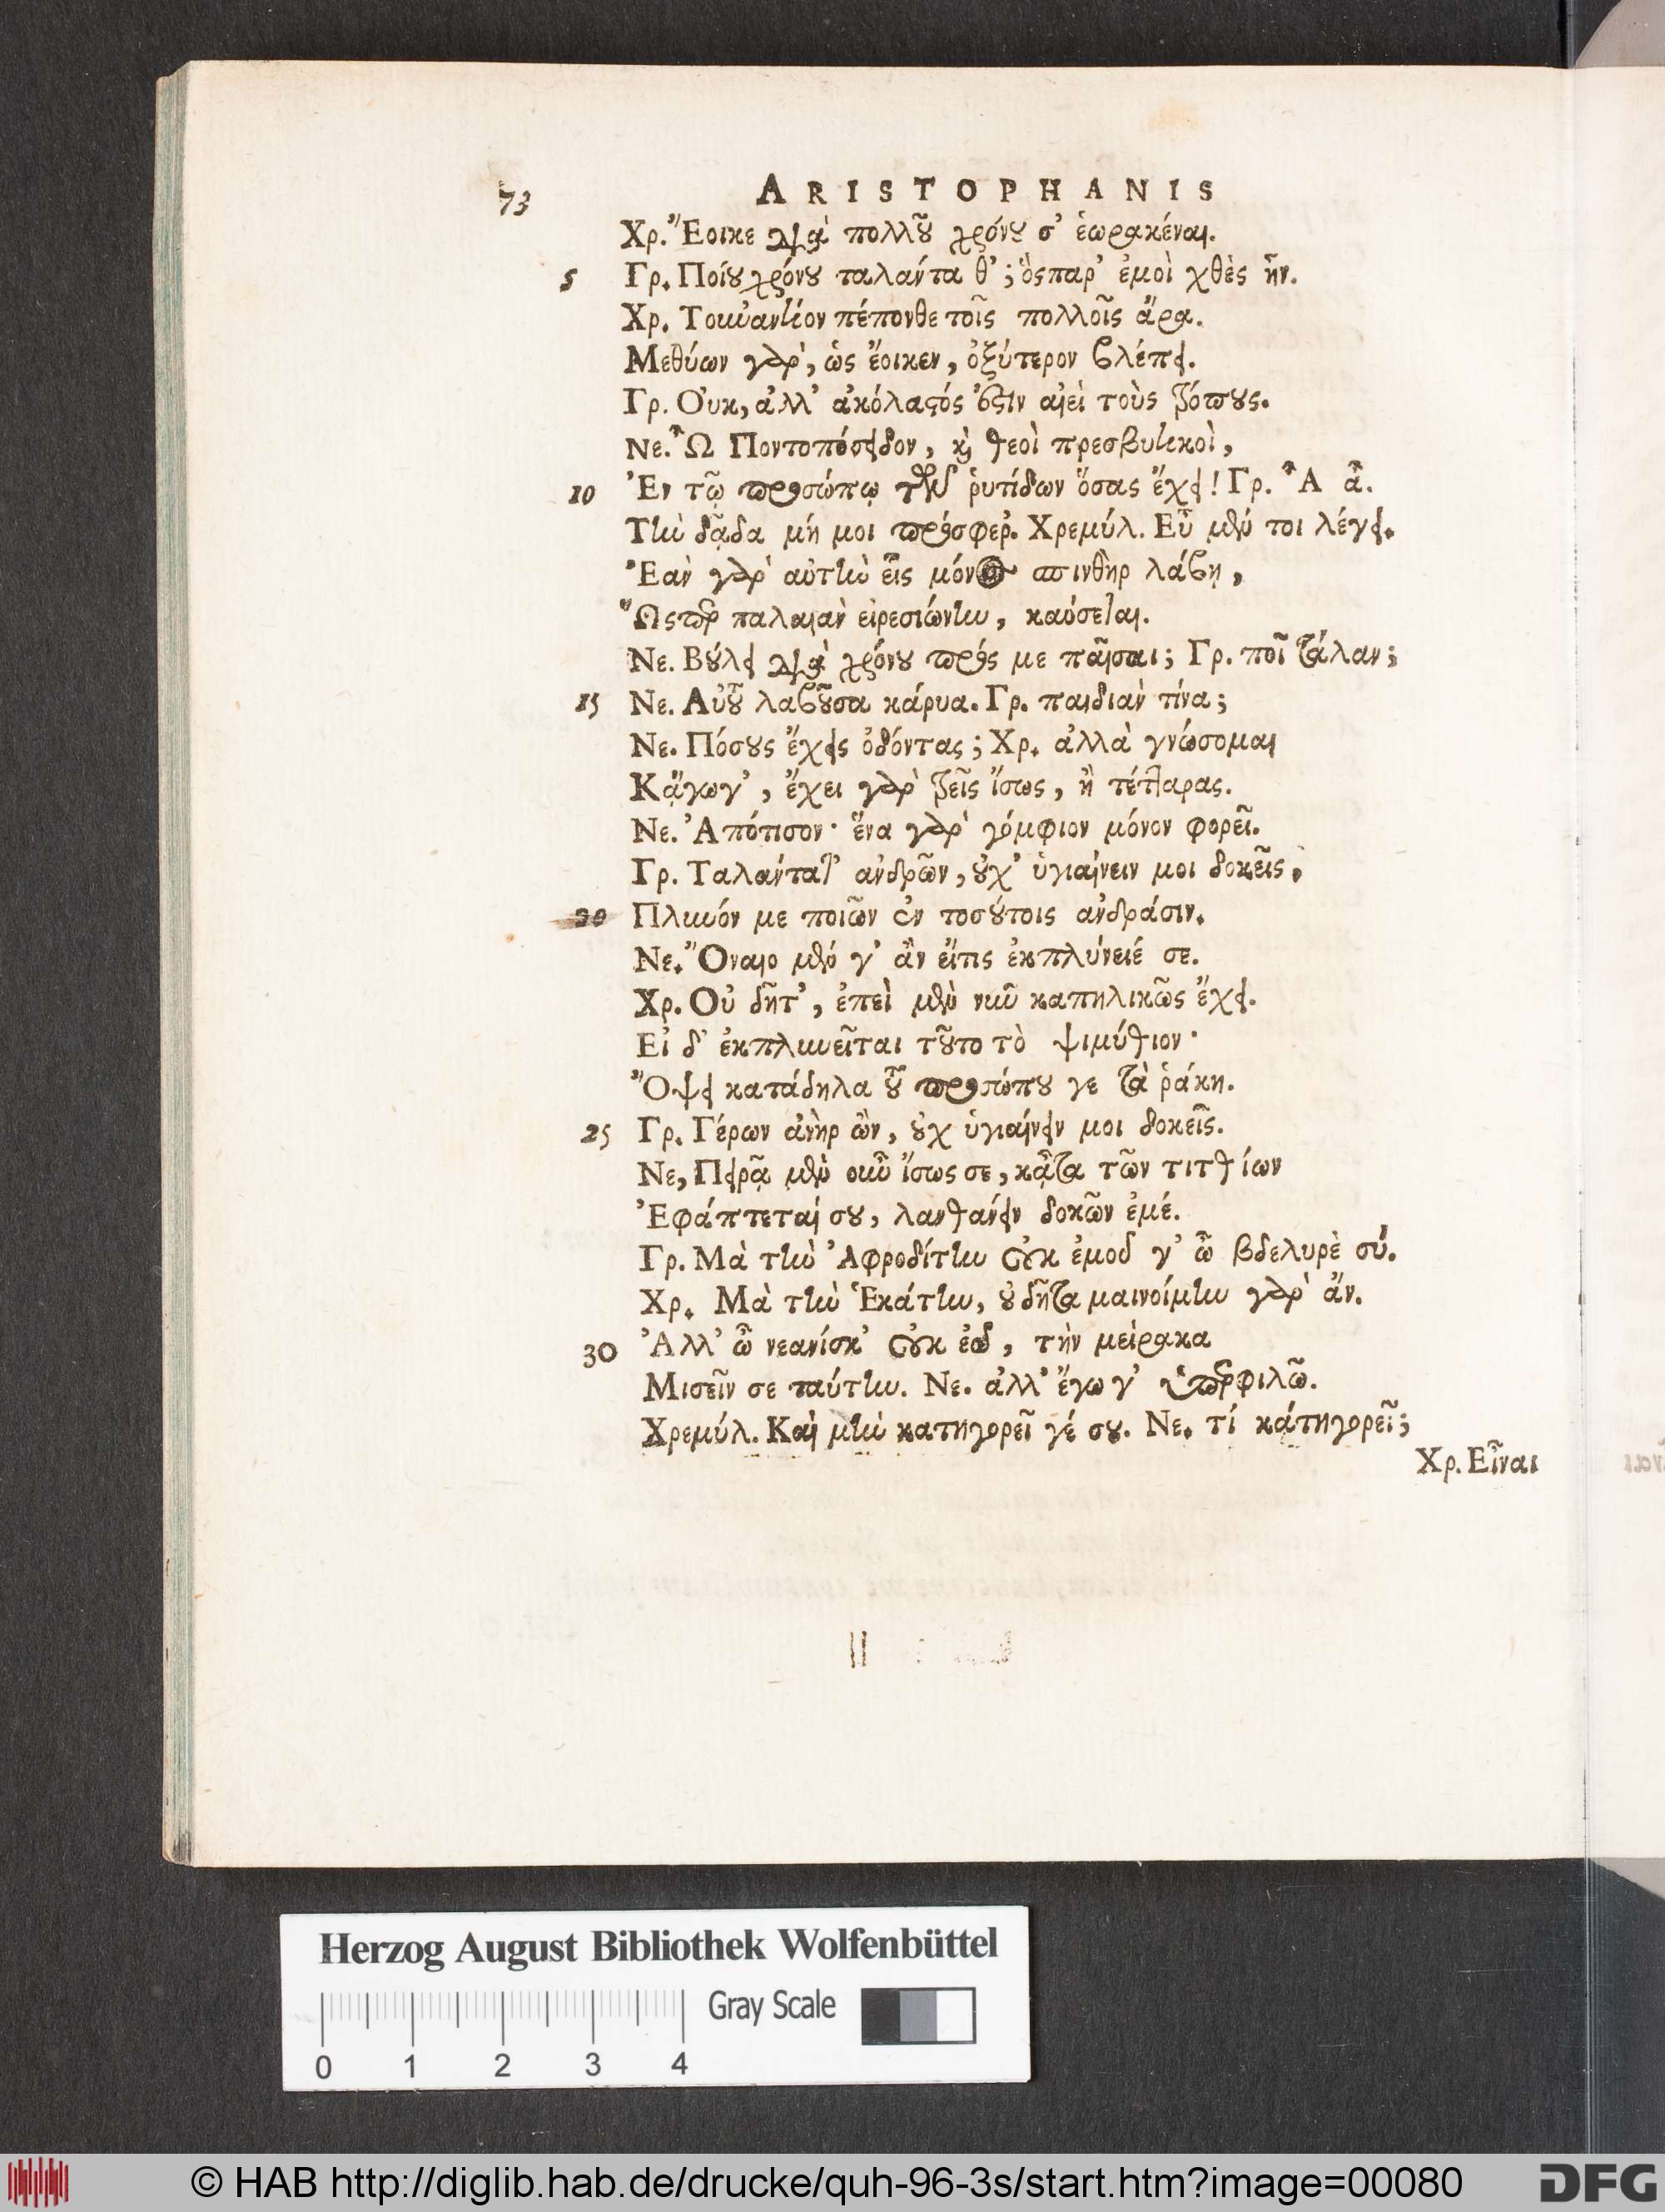 73 ARISTOPHANIS
Χρ. Ἔοικε διὰ πολλοῦ χρόνου σ' ἑωρακέναι.
5 Γρ. Ποίου χρόνου ταλάντα θ'; ὃς παρ' ἐμοὶ χθὲς ἦν.
Χρ. Τοὐναντίον πέπονθε τοῖς πολλοῖς ἄρα.
Μεθύων γὰρ, ὡς ἔοικεν, ὀξύτερον βλέπει.
Γρ. Οὐκ, ἀλλ' ἀκόλαστός ἐστιν αἰεὶ τοὺς τρόπους.
Νε. Ὦ Ποντοπόσειδον, καὶ θεοὶ πρεσβυτικοὶ,
10 Ἐν τῷ προσώπῳ τῶν ῥυτίδων ὅσας ἔχει! Γρ. Ἆ ἆ.
Τὴν δᾷδα μή μοι πρόσφερ'. Χρεμύλ. Εὖ μέν τοι λέγει.
Ἐὰν γὰρ αὐτὴν εἷς μόνος σπινθὴρ λάβῃ,
Ὥσπερ παλαιὰν εἰρεσιώνην, καύσεται.
Νε. Βούλει διὰ χρόνου πρός με παῖσαι; Γρ. ποῖ τάλαν;
15 Νε. Αὐτοῦ λαβοῦσα κάρυα. Γρ. παιδιὰν τίνα;
Νε. Πόσους ἔχεις ὀδόντας; Χρ. ἀλλὰ γνώσομαι
Κᾄγωγ', ἔχει γὰρ τρεῖς ἴσως, ἢ τέτταρας.
Νε. Ἀπότισον· ἕνα γὰρ γόμφιον μόνον φορεῖ.
Γρ. Ταλάντατ' ἀνδρῶν, οὐχ' ὑγιαίνειν μοι δοκεῖς,
20 Πλυνόν με ποιῶν ἐν τοσούτοις ἀνδράσιν.
Νε. Ὄναιο μέν γ' ἂν εἴτις ἐκπλύνειέ σε.
Χρ. Οὐ δῆτ', ἐπεὶ μὲν νῦν καπηλικῶς ἔχει.
Εἰ δ' ἐκπλυνεῖται τοῦτο τὸ ψιμύθιον·
Ὄψει κατάδηλα τοῦ προσώπου γε τὰ ῥάκη.
25 Γρ. Γέρων ἀνὴρ ὢν, οὐχ ὑγιαίνειν μοι δοκεῖς.
Νε, Πειρᾷ μὲν οὖν ἴσως σε, κᾆτα τῶν τιτθίων
Ἐφάπτεταί σου, λανθάνειν δοκῶν ἐμέ.
Γρ. Μὰ τὴν Ἀφροδίτην οὐκ ἐμοῦ γ' ὦ βδελυρὲ σύ.
Χρ. Μὰ τὴν Ἑκάτην, οὐ δῆτα μαινοίμην γὰρ ἄν.
30 Ἀλλ' ὦ νεανίσκ' οὐκ ἐῶ, τὴν μείρακα
Μισεῖν σε ταύτην. Νε. ἀλλ' ἔγωγ' ὑπερφιλῶ.
Χρεμύλ. Καὶ μὴν κατηγορεῖ γέ σου. Νε. τί κάτηγορεῖ;
Χρ. Εἶναι
Herzog August Bibliothek Wolfenbüttel
Gray Scale
0 1 2 3 4
© HAB http://diglib.hab.de/drucke/quh-96-3s/start.htm?image=00080 DFG